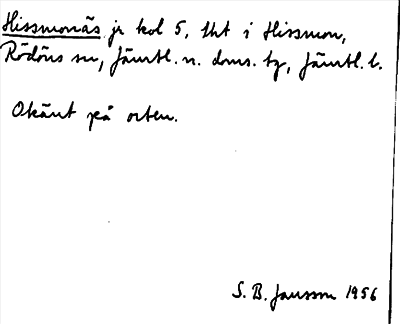 Hissmonäs jr kol 5, tht i Hissmon,
Rödöns sn, Jämtl. n. doms. tg, Jämtl. l.
Okänt på orten.
S. B. Jansson 1956